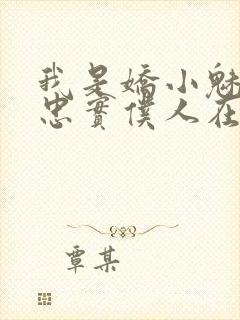 我是嬌小魅
忠實僕人在
覃某